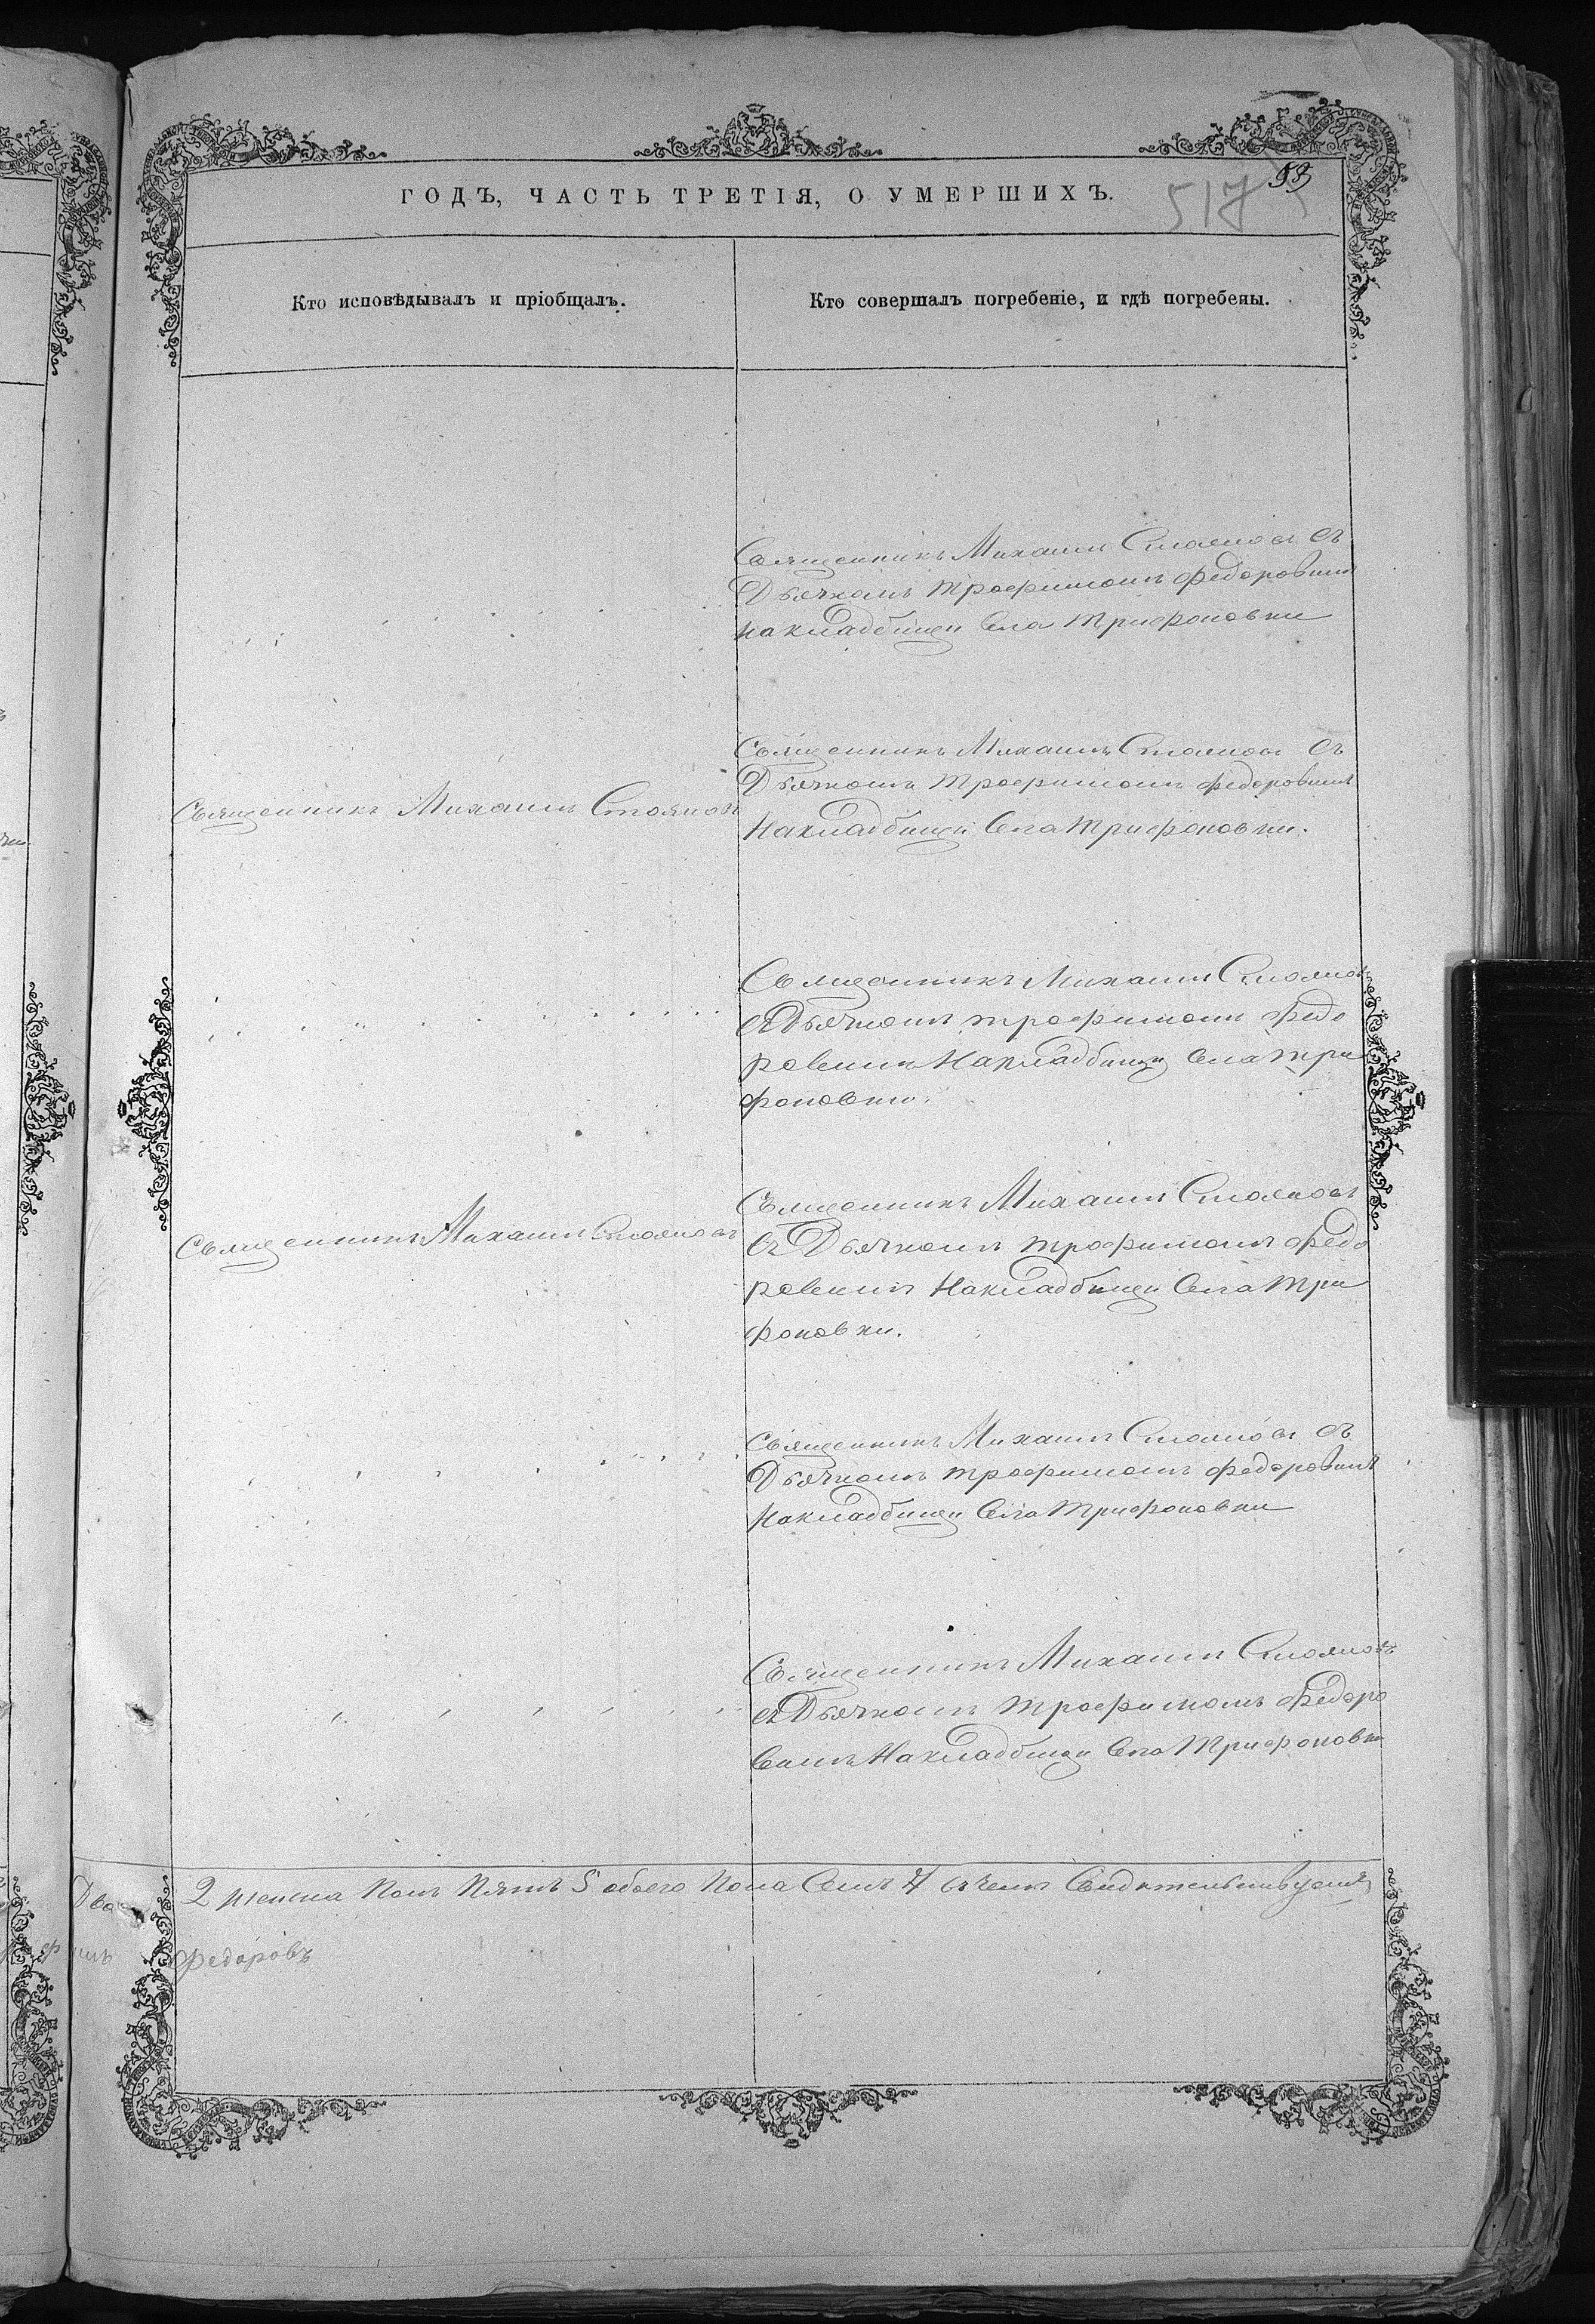 ГОДЪ, ЧАСТЬ ТРЕТІЯ, О УМЕРШИХЪ.
517
53
Кто исповѣдывалъ и пріобщалъ.
Кто совершалъ погребеніе, и гдѣ погребены.
Священникъ Михаилъ Стояновъ съ
Дьячкомъ трофимомъ федоровымъ
на кладбищи Села трифоновки
Священникъ Михаилъ Стояновъ
Священникъ Михаилъ Стояновъ съ
Дьячкомъ трофимомъ федоровымъ
На кладбищи Села трифоновки.
Священникъ Михаилъ Стояновъ
съ Дьячкомъ трофимомъ федо
ровымъ На кладбищи Села три
фоновки.
Священникъ Михаилъ Стояновъ
Священникъ Михаилъ Стояновъ
съ Дьячкомъ трофимомъ федо
ровымъ На кладбищи Села три
фоновки.
Священникъ Михаилъ Стояновъ съ
Дьячкомъ трофимомъ федоровымъ
На кладбищи Села трифоновки
Священникъ Михаилъ Стояновъ
съ Дьячкомъ трофимомъ федоро
вымъ На кладбищи Села трифоновки
Два 2 женска Пола Пять 5 обоего Пола Семъ 7 въ чемъ
федоровъ